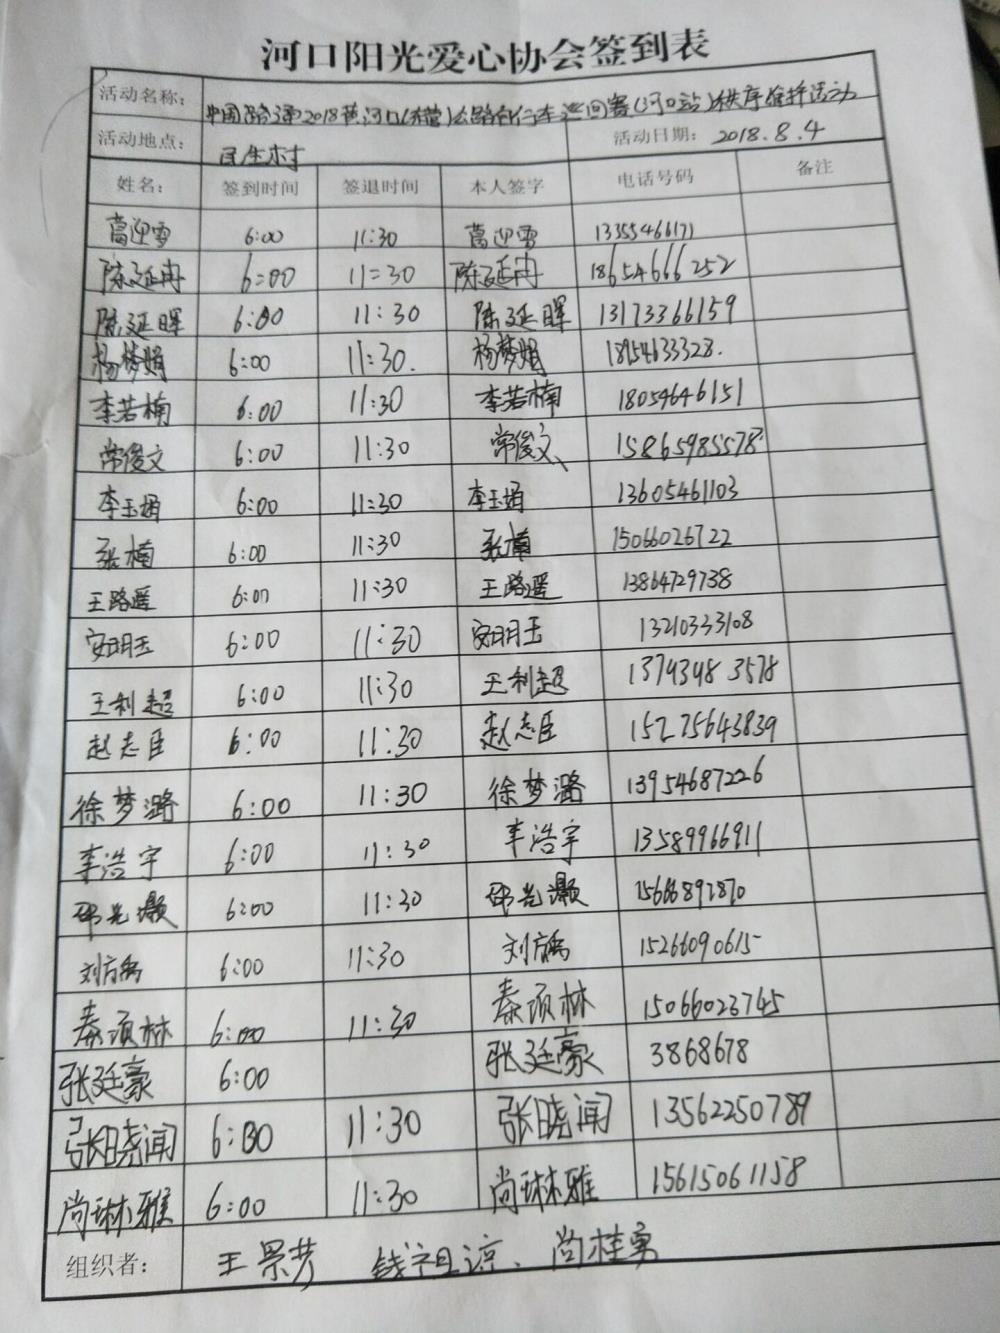 河口阳光爱心协会签到表
活动名称： 中国路通2018黄河口(东营)公路自行车巡回赛(河口站)秩序维持活动
活动地点： 民生村 活动日期： 2018.8.4
姓名： 签到时间 签退时间 本人签字 电话号码 备注
葛迎雪 6:00 11:30 葛迎雪 13355466171
陈延冉 6:00 11:30 陈延冉 18654666252
陈延晖 6:00 11:30 陈延晖 13173366159
杨梦娟 6:00 11:30. 杨梦娟 18954633328.
李若楠 6:00 11:30 李若楠 18054646151
常俊文 6:00 11:30 常俊文 15865985578
李玉娟 6:00 11:30 李玉娟 13605461103
张楠 6:00 11:30 张楠 15066026722
王路遥 6:00 11:30 王路遥 13864729738
安明玉 6:00 11:30 安明玉 13210333108
王利超 6:00 11:30 王利超 13793483578
赵志臣 6:00 11:30 赵志臣 15275643839
徐梦潞 6:00 11:30 徐梦潞 13954687226
李浩宇 6:00 11:30 李浩宇 13589966911
邵光灏 6:00 11:30 邵光灏 15666892870
刘方禹 6:00 11:30 刘方禹 15266090615
秦硕林 6:00 11:30 秦硕林 15066023745
张廷豪 6:00 张廷豪 3868678
张晓闻 6:00 11:30 张晓闻 13562250789
尚琳雅 6:00 11:30 尚琳雅 15615061158
组织者： 王景芳 钱祖谅、尚桂勇